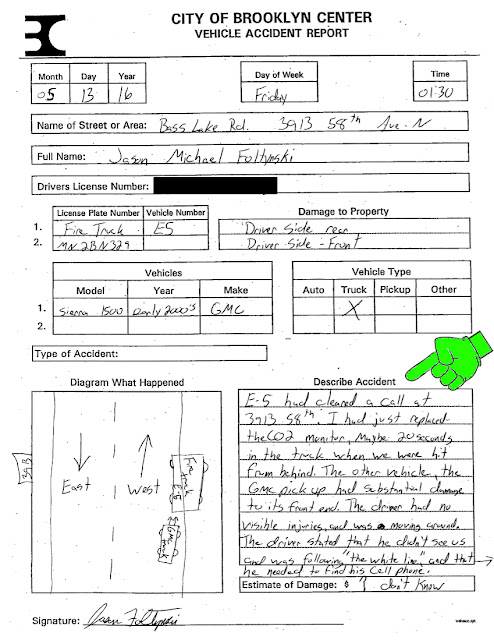 BC
CITY OF BROOKLYN CENTER
VEHICLE ACCIDENT REPORT
Month Day Year
05 13 16
Day of Week
Friday
Time
01:30
Name of Street or Area: Bass Lake Rd. 3913 58th Ave. N
Full Name: Jason Michael Foltynski
Drivers License Number:
License Plate Number Vehicle Number
1. Fire Truck E5
2. MN 2BN329
Damage to Property
Driver Side rear
Driver Side - Front
Vehicles
Model Year Make
1. Sierra 1500 early 2000's GMC
2.
Vehicle Type
Auto Truck Pickup Other
X
Type of Accident:
Diagram What Happened
3913
East
West
Fire truck E-5
GMC truck
Describe Accident
E-5 had cleared a call at
3913 58th. I had just replaced
the CO2 monitor, Maybe 20 seconds
in the truck when we were hit
from behind. The other vehicle, the
GMC pick up had substantial damage
to its front end. The driver had no
visible injuries, and was moving around.
The driver stated that he didn't see us
and was following "the white line" and that
he needed to find his cell phone.
Estimate of Damage: $ ? don't know
Signature: Jason Foltynski